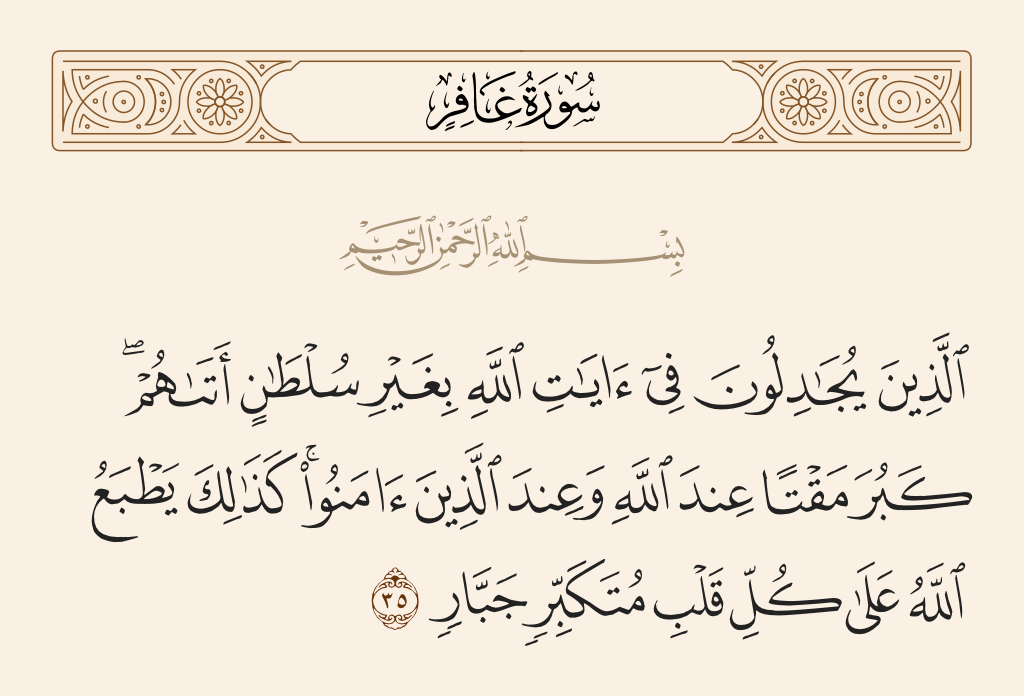 سُورَةُ غَافِرٍ
بِسْمِ ٱللَّهِ ٱلرَّحْمَٰنِ ٱلرَّحِيمِ
ٱلَّذِينَ يُجَٰدِلُونَ فِىٓ ءَايَٰتِ ٱللَّهِ بِغَيْرِ سُلْطَٰنٍ أَتَىٰهُمْ ۖ
كَبُرَ مَقْتًا عِندَ ٱللَّهِ وَعِندَ ٱلَّذِينَ ءَامَنُوا۟ ۚ كَذَٰلِكَ يَطْبَعُ
ٱللَّهُ عَلَىٰ كُلِّ قَلْبِ مُتَكَبِّرٍ جَبَّارٍ ٣٥